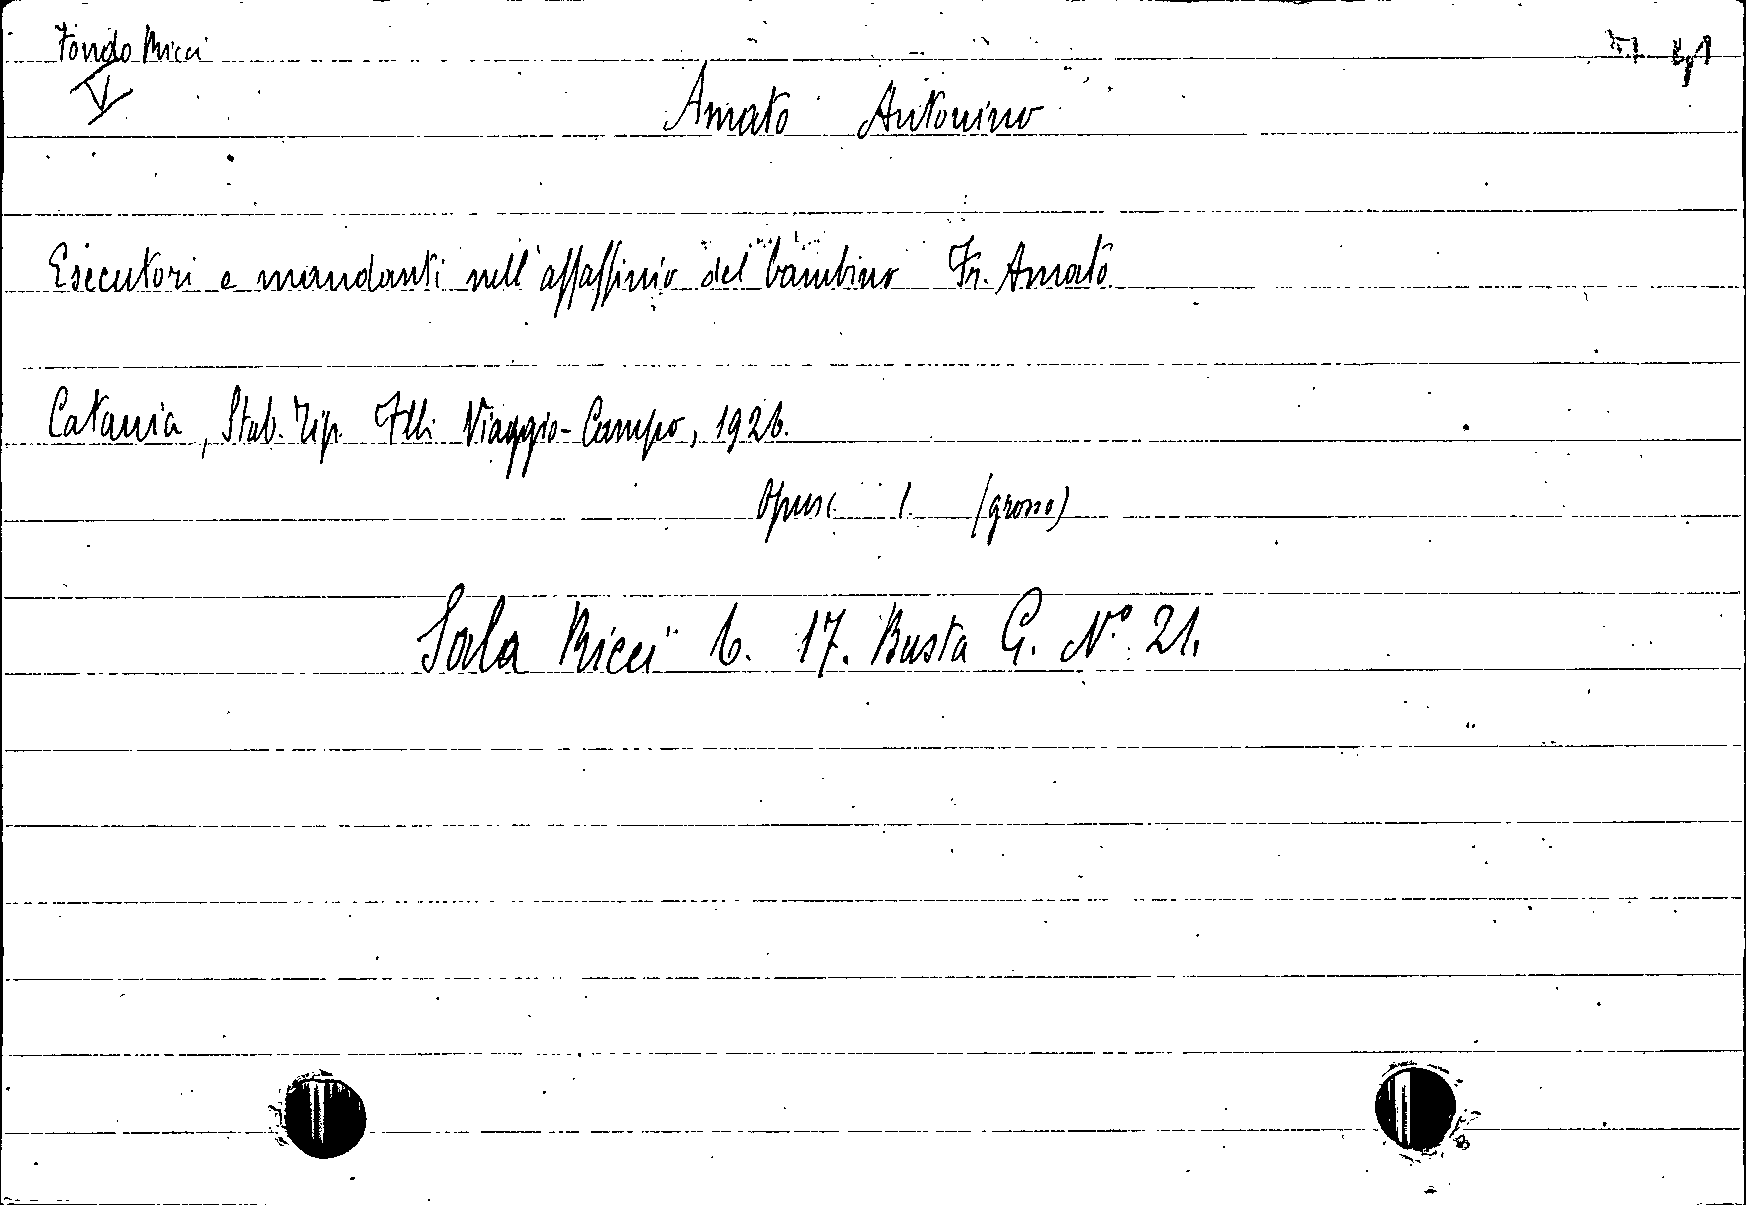 Fondo Ricci
V
Amato Antonino
Esecutori e mandanti nell'assassinio del bambino Fr. Amato.
Catania, Stab. Tip. Flli Viaggio-Campo, 1926.
Opusc. 1. (grosso)
Sala Ricci 6. 17. Busta G. N.° 21.